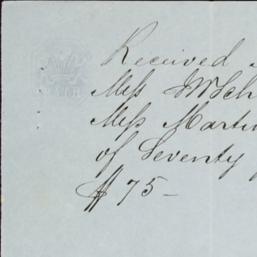 Received
Mess
Mess Martin
of Seventy
$ 75-